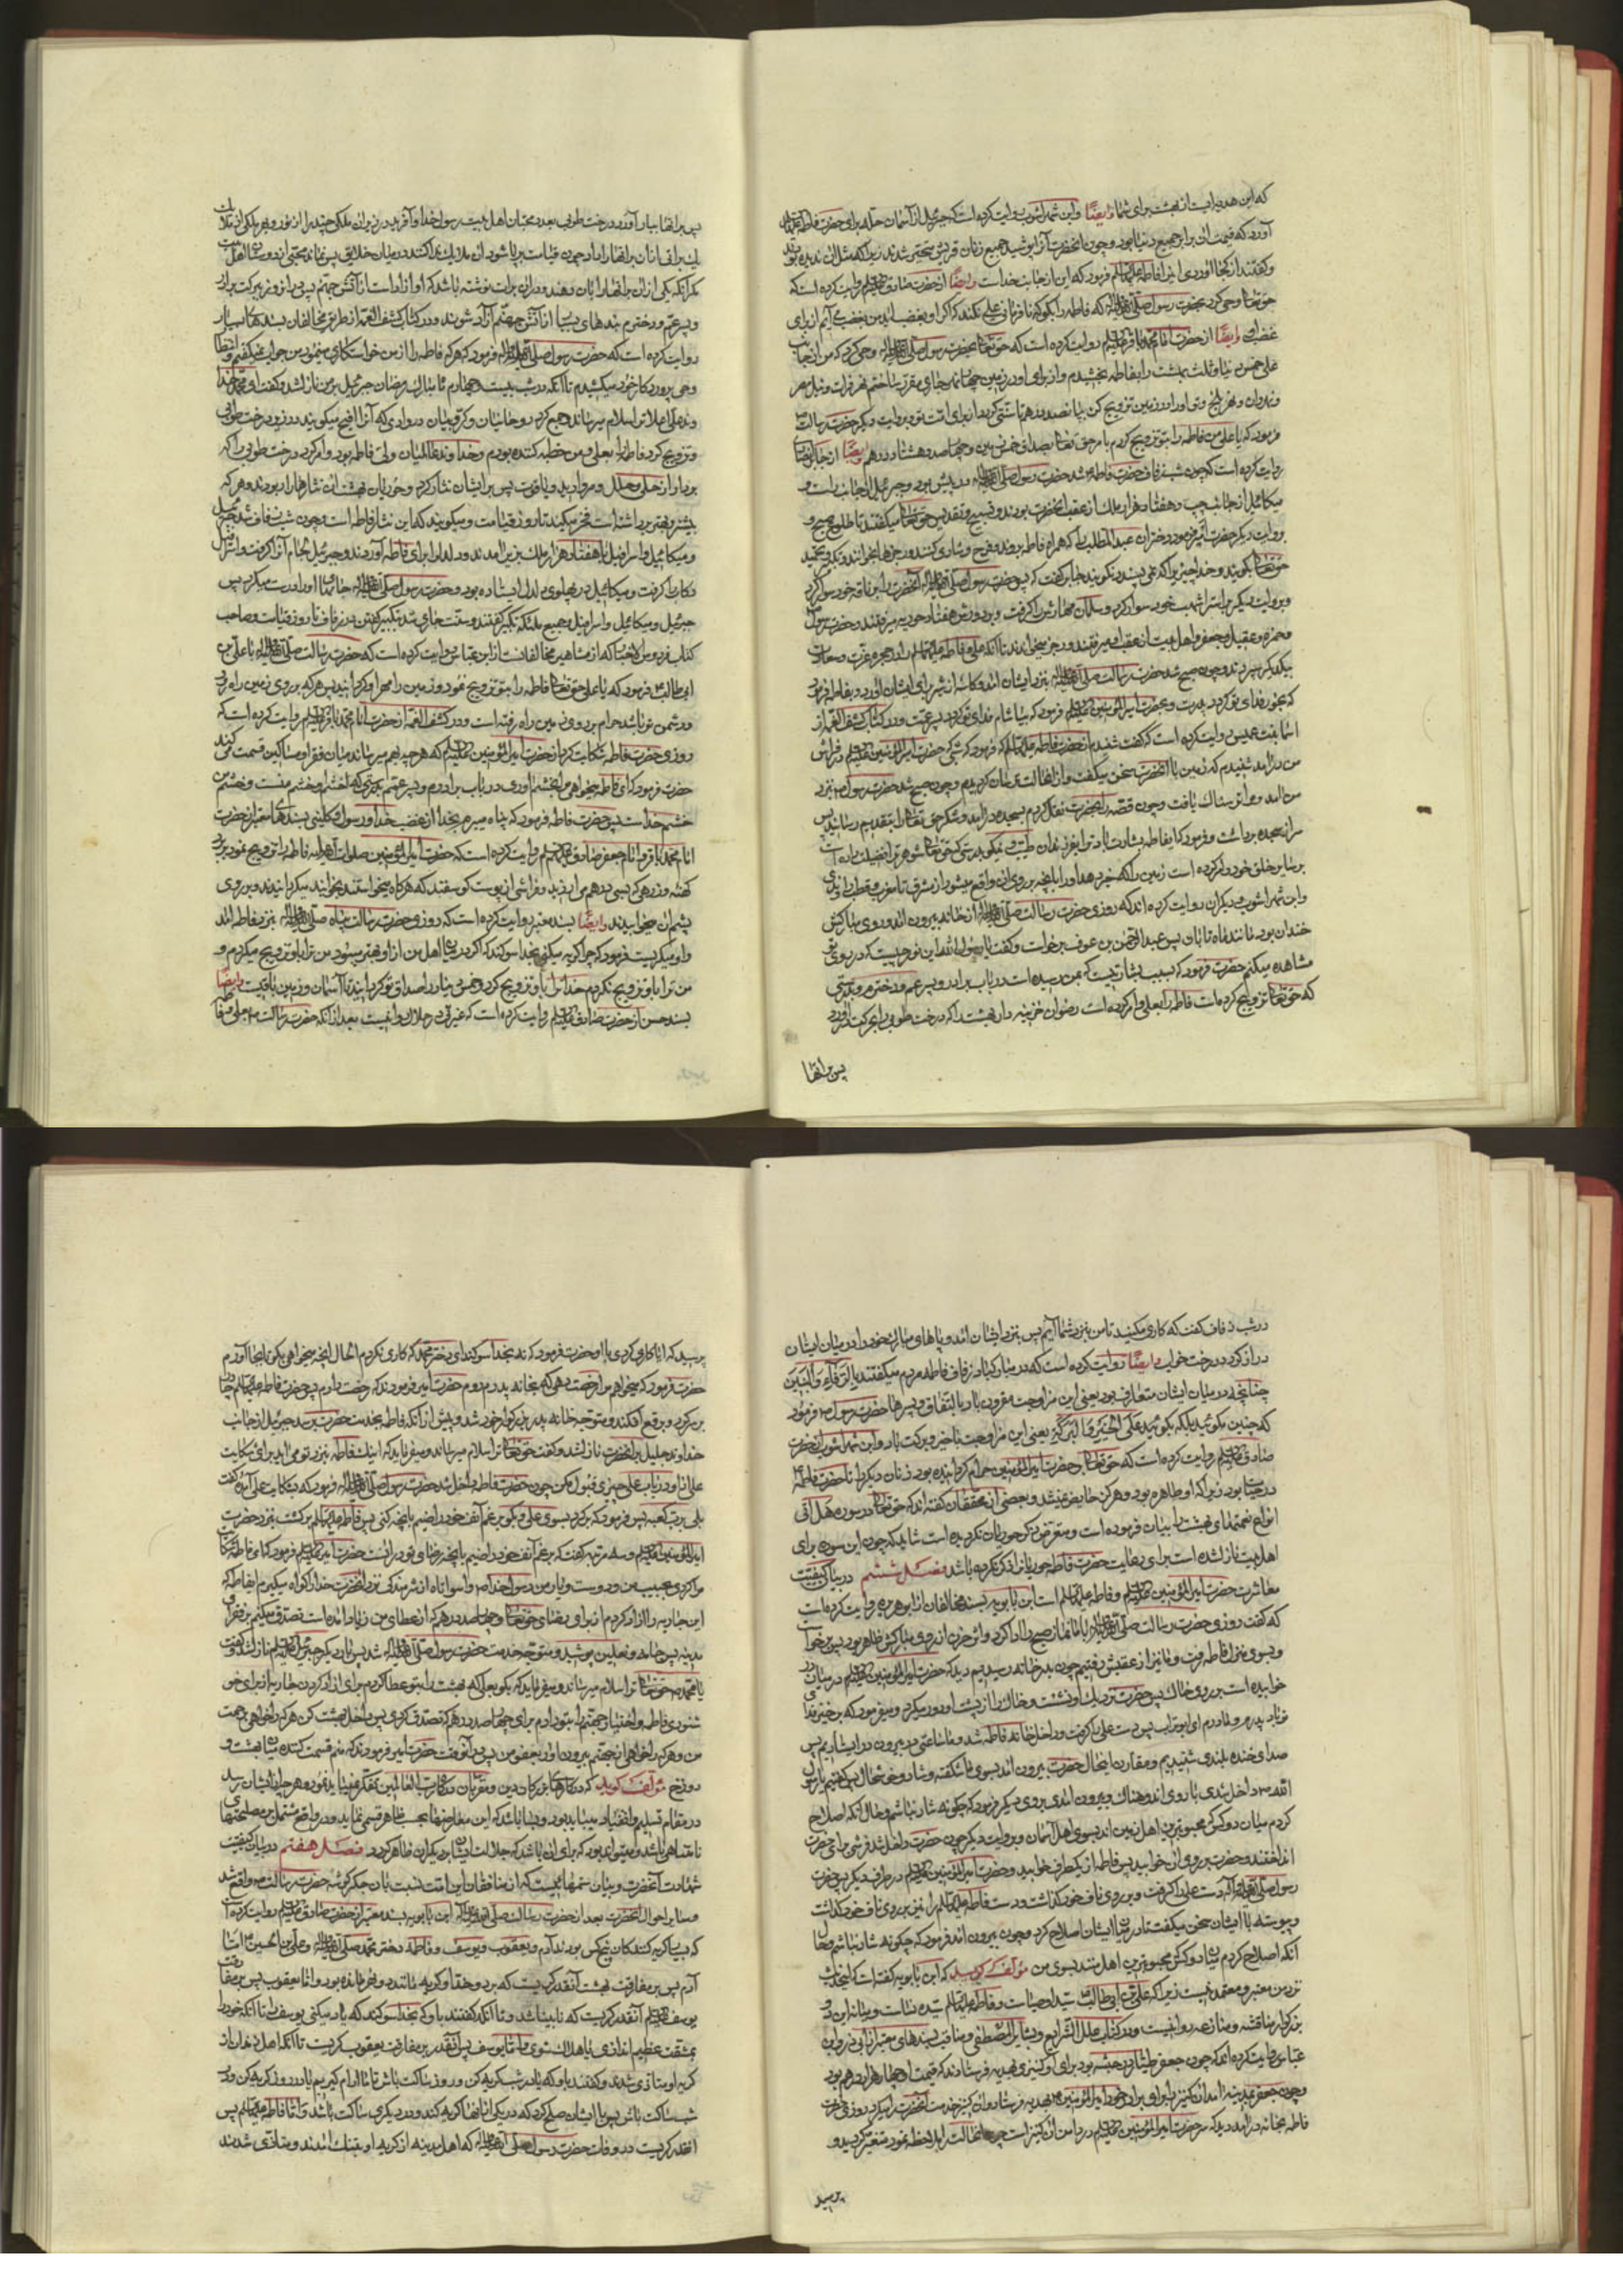 که این هدیه ایست از بهشت برای شما وایضًا وابن شهرآشوب روایت کرده است که جبرئیل از آسمان حله برای حضرت فاطمه
آورد که قیمت آن برابر جمیع دنیا بود و چون آنحضرت آنرا پوشید جمیع زنان قریش متحیر شدند زیرا که مثل آن ندیده بودند
و گفتند از کجا آوردی این را فاطمه فرمود که این از جانب خداست وایضًا از حضرت صادق روایت کرده است که
حق تعالی وحی کرد بحضرت رسول که فاطمه را بگو که نافرمانی علی نکند که اگر او بغضب آید من بغضب می آیم از برای
غضب او وایضًا از حضرت امام محمد باقر روایت کرده است که حق تعالی بحضرت رسول وحی کرد که من از جانب
علی خمس دنیا و ثلث بهشت را بفاطمه بخشیدم و از برای او در زمین چهار نهر جاری مقرر ساختم نهر فرات و نیل مصر
و نهروان و نهر بلخ و تو او را در زمین تزویج کن بپانصد درهم تا سنتی گردد از برای امت تو و بروایت دیگر حضرت رسالت
فرمود که یا علی من فاطمه را بتو تزویج کردم بامر حق تعالی بصداق خمس زمین و چهارصد و هشتاد درهم وایضًا از جابر انصاری
روایت کرده است که چون شب زفاف حضرت فاطمه شد حضرت رسول در پیش بود و جبرئیل از جانب راست و
میکائیل از جانب چپ و هفتاد هزار ملک از عقب آنحضرت بودند و تسبیح و تقدیس حق تعالی میگفتند تا طلوع صبح و
بروایت دیگر حضرت فرمود دختران عبد المطلب را که همراه فاطمه بروند و فرح و شادی کنند و رجزها بخوانند و تکبیر و تحمید
حق تعالی بگویند و چیزی را که نمی پسندد نگویند جابر گفت که پس حضرت رسول آنحضرت را بر ناقه خود سوار کرد
و بروایت دیگر بر استر اشهب خود سوار کرد و سلمان مهارش را گرفت و بر دورش هفتاد حوریه میرفتند و حضرت رسول
و حمزه و عقیل و جعفر و اهل بیت از عقب او میرفتند و رجز میخواندند تا آنکه علی و فاطمه را در حجره عزت و سعادت
بیکدیگر سپردند و چون صبح شد حضرت رسالت بنزد ایشان آمد و کاسه از شیر برای ایشان آورد و بفاطمه فرمود
که بخور فدای تو گردد پدرت و بحضرت امیر المؤمنین فرمود که بیاشام فدای تو گردد پسر عمت و در کتاب کشف الغمه از
اسما بنت عمیس روایت کرده است که گفت شنیدم از حضرت فاطمه که فرمود که شبی که حضرت امیر المؤمنین در فراش
من درآمد شنیدم که زمین با آنحضرت سخن میگفت و از آنحالت ترسان گردیدم و چون صبح شد حضرت رسول بنزد
من آمد و مرا ترسناک یافت و چون قصه را بحضرت نقل کردم بسجده درآمد و شکر حق تعالی را بتقدیم رسانید پس
سر از سجده برداشت و فرمود که ای فاطمه بشارت باد ترا بفرزندان طیب و نیکو بدرستی که حق تعالی شوهر ترا فضیلت داده است
بر سایر خلق خود و امر کرده است زمین را که خبر دهد او را بآنچه بر روی آن واقع میشود از مشرق تا مغرب و قطب راوندی
وابن شهرآشوب و دیگران روایت کرده اند که روزی حضرت رسالت از خانه بیرون آمد و روی مبارکش
خندان بود مانند ماه تابان پس عبد الرحمن بن عوف برخواست و گفت یا رسول الله این نور چیست که در روی تو
مشاهده میکنم حضرت فرمود که بسبب بشارتیست که بمن رسیده است در باب برادر و پسر عم و دخترم بدرستی
که حق تعالی تزویج کرده است فاطمه را بعلی و امر کرده است رضوان خزینه دار بهشت را که درخت طوبی را بحرکت درآورد
پس براتها
پس براتها ببار آورد درخت طوبی بعدد محبان اهل بیت رسول خدا و آفرید در زیر آن ملکی چند را از نور و بهر ملکی از ملائکه
یک برات از آن براتها را داد چون قیامت برپا شود آن ملائکه ندا کنند در میان خلایق پس نماند محبی از دوستان اهل بیت
مگر آنکه یکی از آن براتها را بآن دهند و در آن برات نوشته باشد که او آزاد است از آتش جهنم پس برای او ببرکت برادر
و پسر عم و دخترم بندهای بسیار از آتش جهنم آزاد شوند و در کتاب کشف الغمه از طریق مخالفان بسندهای بسیار
روایت کرده است که حضرت رسول فرمود که هرکه فاطمه را از من خواستگاری مینمود من جواب نمیگفتم و انتظار
وحی پروردگار خود میکشیدم تا آنکه در شب بیست و چهارم ماه مبارک رمضان جبرئیل بر من نازل شد و گفت ای محمد
خداوند علی اعلا ترا سلام میرساند و جمع کرد روحانیان و کروبیان در وادی که آنرا افیح میگویند در زیر درخت طوبی
و تزویج کرد فاطمه را بعلی و من خطبه کننده بودم و خداوند عالمیان ولی فاطمه بود و امر کرد درخت طوبی را که
بردارد از حلی و حلل و مروارید و یاقوت پس بر ایشان نثار کرد و حوریان بهشت آن نثارها را ربودند و هر که
بیشتر و بهتر برداشته است فخر میکند تا روز قیامت و میگویند که این نثار فاطمه است و چون شب زفاف شد جبرئیل
و میکائیل و اسرافیل با هفتاد هزار ملک بزیر آمدند و دلدل را برای فاطمه آوردند و جبرئیل لجام آنرا گرفت و اسرافیل
رکاب گرفت و میکائیل در پهلوی دلدل ایستاده بود و حضرت رسول جامهای او را درست میکرد پس
جبرئیل و میکائیل و اسرافیل و جمیع ملائکه تکبیر گفتند و سنت جاری شد تکبیر گفتن در زفاف تا روز قیامت و صاحب
کتاب فردوس الاخبار که از مشاهیر مخالفانست از ابن عباس روایت کرده است که حضرت رسالت با علی بن
ابی طالب فرمود که یا علی حق تعالی فاطمه را بتو تزویج نمود و زمین را مهر او گردانید پس هر که بر روی زمین راه رود
و دشمن تو باشد حرام بر روی زمین راه رفته است و در کشف الغمه از حضرت امام محمد باقر روایت کرده است که
روزی حضرت فاطمه شکایت کرد از حضرت امیر المؤمنین که هر چه بهم میرساند میان فقرا و مساکین قسمت میکند
حضرت فرمود که ای فاطمه میخواهی مرا بخشم آوری در باب برادرم و پسر عمم بدرستی که خشم او خشم منست و خشم من
خشم خداست پس حضرت فاطمه فرمود که پناه میبرم بخدا از غضب خدا و رسول و کلینی بسندهای معتبر از حضرت
امام محمد باقر و امام جعفر صادق روایت کرده است که حضرت امیر المؤمنین فاطمه را تزویج نمود ببردی
کهنه و زرهی که بسی درهم می ارزید و فراشی از پوست گوسفند که هرگاه میخواستند بخوابند میگردانیدند و بر روی
پشم آن میخوابیدند وایضًا بسند معتبر روایت کرده است که روزی حضرت رسالت پناه بنزد فاطمه آمد
و او میگریست فرمود که چرا گریه میکنی بخدا سوگند که اگر در میان اهل من از او بهتر میبود من ترا باو تزویج میکردم و
من ترا باو تزویج نکردم خدا ترا باو تزویج کرد و خمس دنیا را صداق تو گردانید تا آسمان و زمین باقیست وایضًا
بسند حسن از حضرت صادق روایت کرده است که غیرتی در حلال روا نیست بعد از آنکه حضرت رسالت بعلی و فاطمه
در شب زفاف گفت که کاری مکنید تا من بنزد شما آیم پس بنزد ایشان آمد و پاهای مبارک خود را در میان ایشان
دراز کرد در رخت خواب وایضًا روایت کرده است که در مبارکباد زفاف فاطمه مردم میگفتند بالرفاء والبنین
چنانچه در میان ایشان متعارف بود یعنی این مزاوجت مقرون باد باتفاق و پسرها حضرت رسول فرمود
که چنین مگوئید بلکه بگوئید علی الخیر والبرکة یعنی این مزاوجت با خیر و برکت باد وابن شهرآشوب از حضرت
صادق روایت کرده است که حق تعالی بر حضرت امیر المؤمنین حرام گردانیده بود زنان دیگر را تا حضرت فاطمه
در حیات بود زیرا که او طاهر بود و هرگز حایض نمیشد و بعضی از محققان گفته اند که حق تعالی در سوره هل اتی
انواع نعمتهای بهشت را بیان فرموده است و متعرض ذکر حوریان نگردیده است شاید که چون این سوره برای
اهل بیت نازل شده است برای رعایت حضرت فاطمه حوریان را ذکر نکرده باشد فصل ششم در بیان کیفیت
معاشرت حضرت امیر المؤمنین و فاطمه است ابن بابویه بسند مخالفان از ابو هریره روایت کرده است
که گفت روزی حضرت رسالت با ما نماز صبح را ادا کرد و اثر حزن از روی مبارکش ظاهر بود پس برخواست
و بسوی منزل فاطمه رفت و ما نیز از عقبش رفتیم چون بدر خانه رسیدیم دید که حضرت امیر المؤمنین در میان در
خوابیده است بر روی خاک پس حضرت نزدیک او نشست و خاک را از پشت او دور میکرد و میفرمود که برخیز فدای
تو باد پدرم و مادرم ای ابو تراب پس دست علی را گرفت و داخل خانه فاطمه شد و ما ساعتی در بیرون در ایستادیم پس
صدای خنده بلندی شنیدیم و مقارن اینحال حضرت بیرون آمد بسوی ما شکفته و شاد و خوشحال پس گفتیم یا رسول
الله داخل شدی با روی اندوهناک و بیرون آمدی بروی دیگر فرمود که چگونه شاد نباشم و حال آنکه اصلاح
کردم میان دو کس که محبوبترین اهل زمین اند بسوی اهل آسمان و بروایت دیگر چون حضرت داخل شد فرشی برای حضرت
انداختند و حضرت بر روی آن خوابید پس فاطمه از یکطرف خوابید و حضرت امیر المؤمنین در طرف دیگر پس حضرت
رسول دست علی را گرفت و بر روی ناف خود گذاشت و دست فاطمه را نیز بر روی ناف خود گذاشت
و پیوسته با ایشان سخن میگفت تا در میان ایشان اصلاح کرد و چون بیرون آمد فرمود که چگونه شاد نباشم و حال
آنکه اصلاح کردم میان دو کس که محبوبترین اهل زمینند بسوی من مؤلف گوید که ابن بابویه گفته است که اینحدیث
نزد من معتبر و معتمد نیست زیرا که علی بن ابی طالب سید اوصیاست و فاطمه سیده نساست و میانه این دو
بزرگوار مناقشه و منازعه روا نیست و در کتاب علل الشرایع و بشایر المصطفی و مناقب بسندهای معتبر از ابی ذر و ابن
عباس روایت کرده اند که چون جعفر طیار در حبشه بود برای او کنیزی بهدیه فرستادند که قیمت او چهار هزار درهم بود
و چون جعفر بمدینه آمد آن کنیز را برای برادر خود امیر المؤمنین بهدیه فرستاد و آن کنیز خدمت آنحضرت را میکرد روزی حضرت
فاطمه بخانه درآمد دید که سر حضرت امیر المؤمنین در دامن آن کنیز است چون آنحالت را ملاحظه نمود متغیر گردید و
پرسید
پرسید که آیا کاری کردی با او حضرت فرمود که نه بخدا سوگند ای دختر محمد که کاری نکردم الحال آنچه میخواهی بگو تا بجا آورم
حضرت فرمود که میخواهم مرا رخصت دهی که بخانه پدرم روم حضرت امیر فرمودند که رخصت دادم پس حضرت فاطمه چادر
بر سر کرد و برقع افکند و متوجه خانه پدر بزرگوار خود شد و پیش از آنکه فاطمه بخدمت حضرت برسد جبرئیل از جانب
خداوند جلیل بر آنحضرت نازل شد و گفت حق تعالی ترا سلام میرساند و میفرماید که اینک فاطمه بنزد تو می آید برای شکایت
علی از او در باب علی چیزی قبول مکن چون حضرت فاطمه داخل شد حضرت رسول فرمود که بشکایت علی آمده گفت
بلی برب کعبه پس فرمود که برگرد بسوی علی و بگو برغم انف خود راضیم بآنچه کنی پس فاطمه برگشت بنزد حضرت
امیر المؤمنین و سه مرتبه گفت که برغم انف خود راضیم بآنچه رضای تو در آنست حضرت امیر فرمود که ای فاطمه شکایت
مرا کردی بحبیب من و دوست و یار من رسول خدا واسواتاه از شرمندگی نزد آنحضرت خدا را گواه میگیرم ای فاطمه که
این جاریه را آزاد کردم از برای رضای حق تعالی و چهارصد درهم که از عطای من زیاد آمده است تصدق میکنم بر فقرای
مدینه پس جامه و نعلین پوشید و متوجه خدمت حضرت رسول شد پس بار دیگر جبرئیل نازل شد و گفت
یا محمد حق تعالی ترا سلام میرساند و میفرماید که بگو بعلی که بهشت را بتو عطا کردم برای آزاد کردن جاریه از برای خو
شنودی فاطمه و اختیار جهنم را بتو دادم برای چهارصد درهم که تصدق کردی پس داخل بهشت کن هر که را خواهی برحمت
من و هر که را خواهی از جهنم بیرون آور بعفو من پس در آنوقت حضرت امیر فرمودند که منم قسمت کننده میان بهشت و
دوزخ مؤلف گوید که در کارهای بزرگان دین و مقربان درگاه رب العالمین تفکر نمیباید نمود و هر چه از ایشان رسد
در مقام تسلیم و انقیاد میباید بود و بسا باشد که این معارضها بحسب ظاهر قسمی نماید و در واقع مشتمل بر مصلحتهای
نامتناهی باشد و میتواند بود که برای آن باشد که جلالت ایشان بر دیگران ظاهر گردد فصل هفتم در بیان کیفیت
شهادت آنحضرت و بیان ستمهائیست که از منافقان این امت نسبت بآن جگر گوشه حضرت رسالت واقع شد
و سایر احوال آنحضرت بعد از حضرت رسالت ابن بابویه بسند معتبر از حضرت صادق روایت کرده است
که بسیار گریه کنندگان پنج کس بودند آدم و یعقوب و یوسف و فاطمه دختر محمد و علی بن الحسین اما
آدم پس بر مفارقت بهشت آنقدر گریست که بر دو خد او گریه مانند دو نهر مانده بود و اما یعقوب پس بر مفارقت
یوسف آنقدر گریست که نابینا شد و تا آنکه گفتند باو که بخدا سوگند که یاد میکنی یوسف را تا آنکه خود را
بمشقت عظیم اندازی یا هلاک شوی و اما یوسف پس آنقدر بر مفارقت یعقوب گریست تا آنکه اهل زندان از
گریه او متأذی شدند و گفتند باو که یا در شب گریه کن و در روز ساکت باش تا ما آرام گیریم یا در روز گریه کن و در
شب ساکت باش پس با ایشان صلح کرد که در یکی از آنها گریه کند و در دیگری ساکت باشد و اما فاطمه پس
آنقدر گریست در وفات حضرت رسول که اهل مدینه از گریه او بتنگ آمدند و متأذی شدند